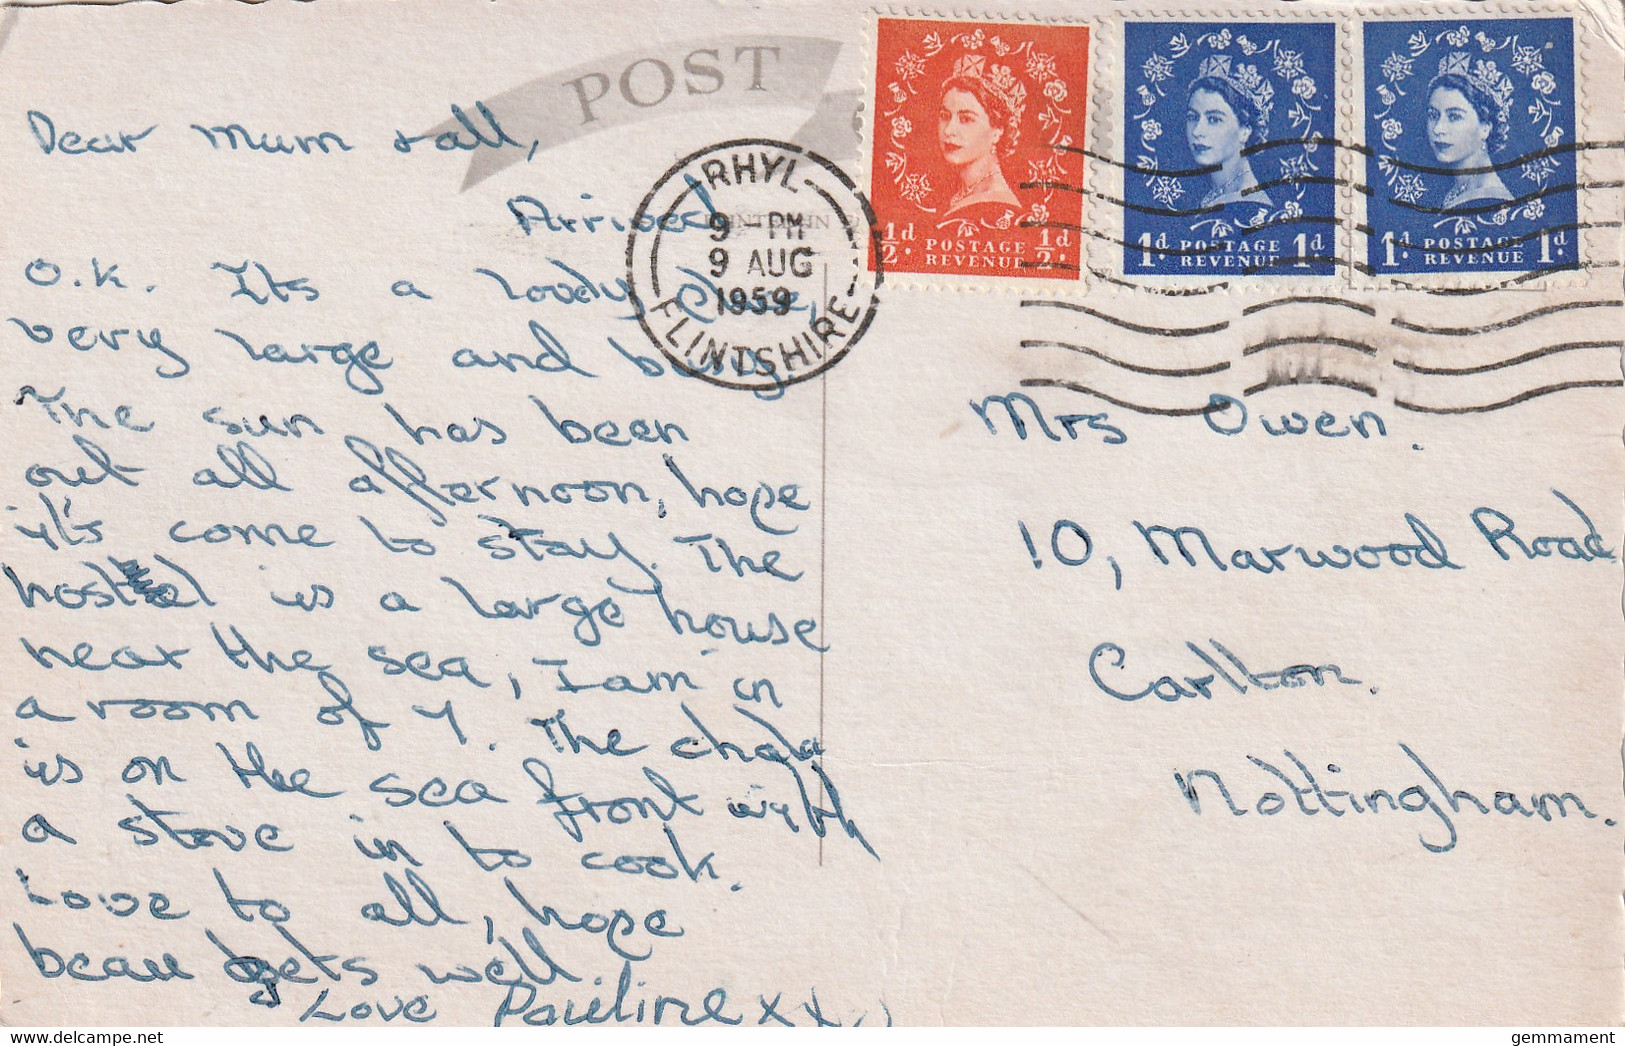 POST
RHYL
9 - PM
9 AUG
1959
FLINTSHIRE
½d POSTAGE REVENUE ½d
1d POSTAGE REVENUE 1d
1d POSTAGE REVENUE 1d
Dear Mum & all,
Arrived
O.K. Its a lovely place,
very large and busy.
The sun has been
out all afternoon, hope
it's come to stay. The
hostel is a large house
near the sea, I am in
a room of 4. The
is on the sea front with
a stove in to cook.
Love to all, hope
gets well.
Love Pauline xxx
Mrs Owen.
10, Marwood Road
Carlton.
Nottingham.
gemmament
www.delcampe.net